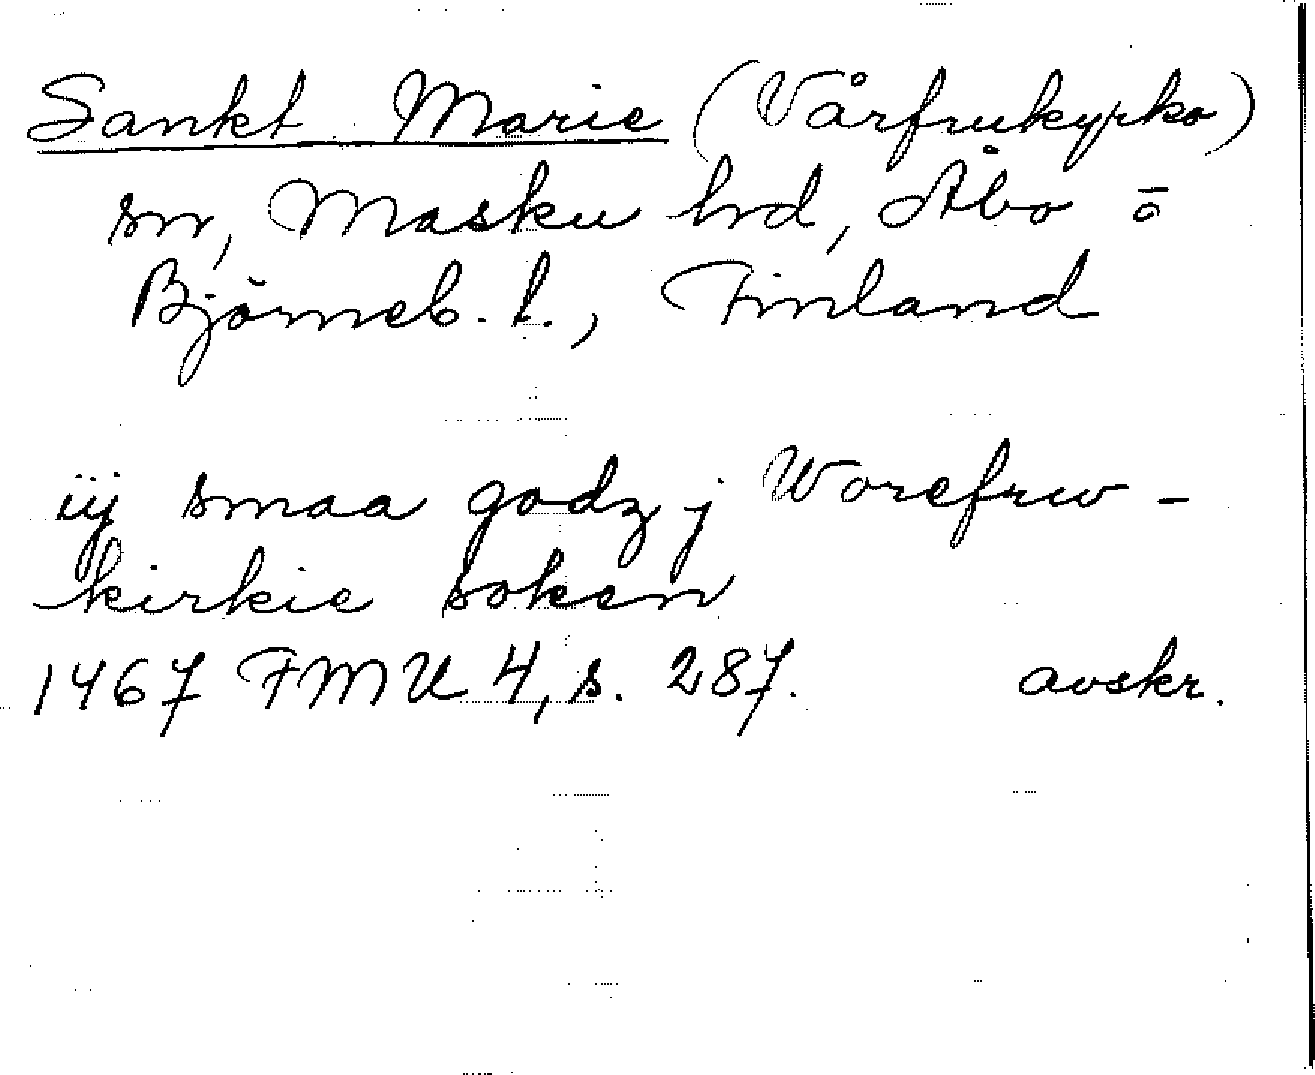 Sankt Marie (Vårfrukyrko)
sn, Masku hrd, Åbo o
Björneb. l., Finland
iij smaa godz j Worefrw-
kirkie soken
1467 FMU 4, s. 287. avskr.